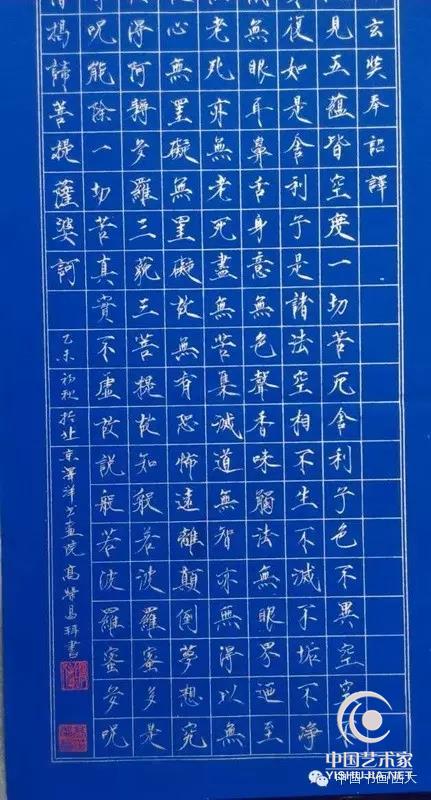 玄奘奉詔譯
見五蘊皆空度一切苦厄舍利子色不異空空
復如是舍利子是諸法空相不生不滅不垢不净
無眼耳鼻舌身意無色聲香味觸法無眼界迺至
老死亦無老死盡無苦集滅道無智亦無得以無
心無罣礙無罣礙故無有恐怖遠離顛倒夢想究
得阿耨多羅三藐三菩提故知般若波羅蜜多是
呪能除一切苦真實不虛故說般若波羅蜜多呪
揭諦菩提薩婆訶
乙未初秋於北京澤洋書畫院高昌書
中国艺术家
YISHUJIA.NET